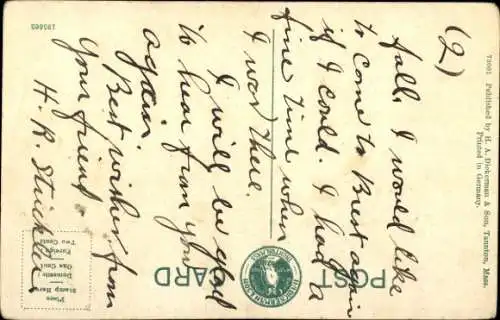 (2)
fall. I would like
to come to Brest again
if I could. I had a
fine time when
I was there.
I will be glad
to hear from you
again.
Best wishes from
your friend.
H. R.
POST CARD
Place
Stamp Here
Domestic
One Cent
Foreign
Two Cents
195865
Published by H. A. Dickerman & Son, Taunton, Mass.
Printed in Germany.